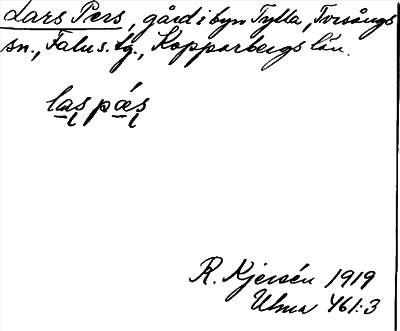 Lars Pers, gård i byn Tylla, Torsångs
sn., Falu s. tg., Kopparbergs län.
las pæs
R. Njersén 1919
Ulma 461:3